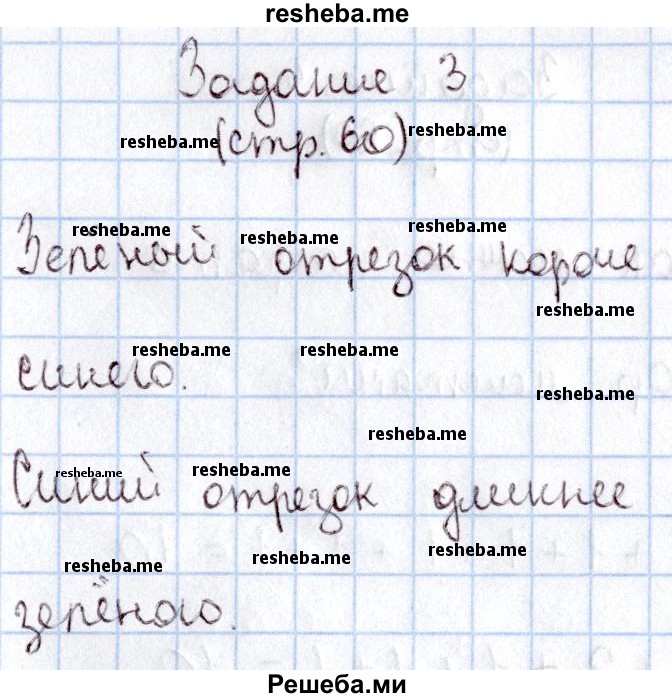 resheba.me
Задание 3
resheba.me (стр. 60) resheba.me
resheba.me resheba.me resheba.me
Зелёный отрезок короче
resheba.me
resheba.me resheba.me
синего.
resheba.me
resheba.me
resheba.me resheba.me
Синий отрезок длиннее
resheba.me resheba.me resheba.me
зелёного.
Решеба.ми